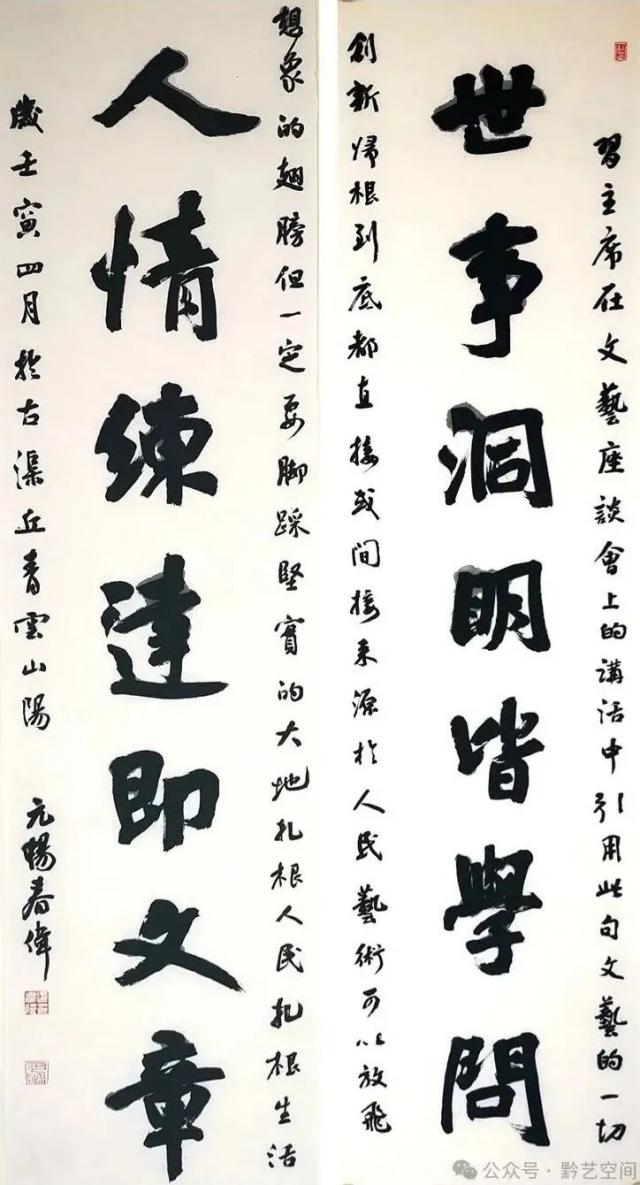 習主席在文藝座談會上的講话中引用此句文藝的一切
世事洞明皆學問
創新歸根到底都直接或间接来源於人民藝術可以放飛
想象的翅膀但一定要脚踩堅實的大地扎根人民扎根生活
人情練達即文章
歲壬寅四月於古渠丘青雲山陽
元暢春偉
公众号·黔艺空间